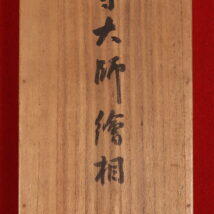 大師繪相